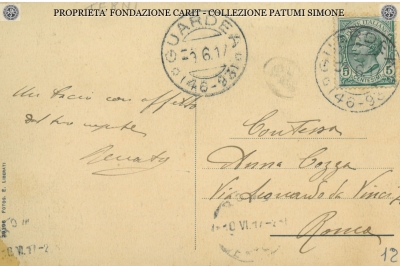 PROPRIETA' FONDAZIONE CARIT - COLLEZIONE PATUMI SIMONE
GUARDEA
6.17
(46-93)
5
GUARDEA
(46-93)
Un bacio con affetto
dal tuo nipote
Renato
Contessa
Anna Cozza
Via Leonardo da Vinci
Roma
VI.17
VI.17
12